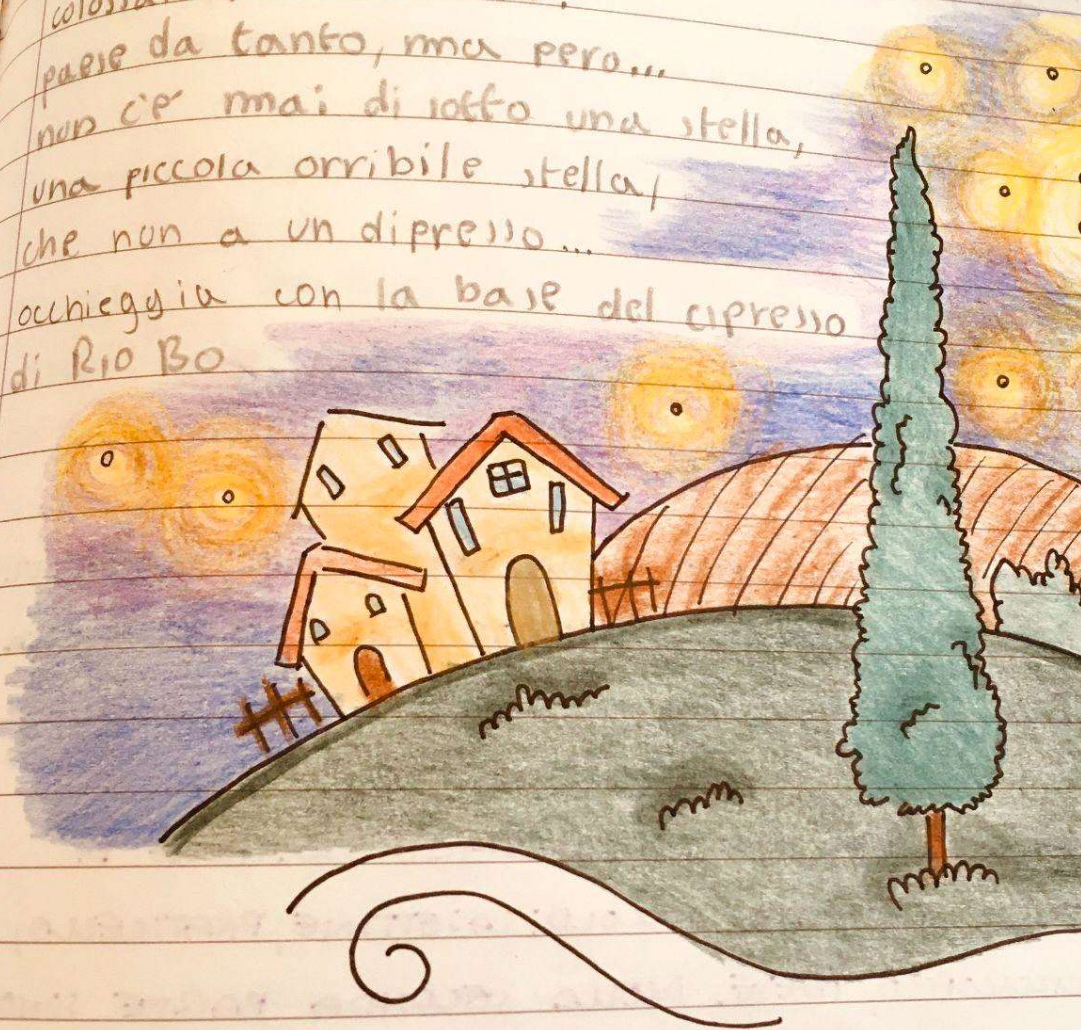 paese da tanto, ma pero...
non c'e' mai di sotto una stella,
una piccola orribile stella,
che non a un dipresso...
occhieggia con la base del cipresso
di Rio Bo